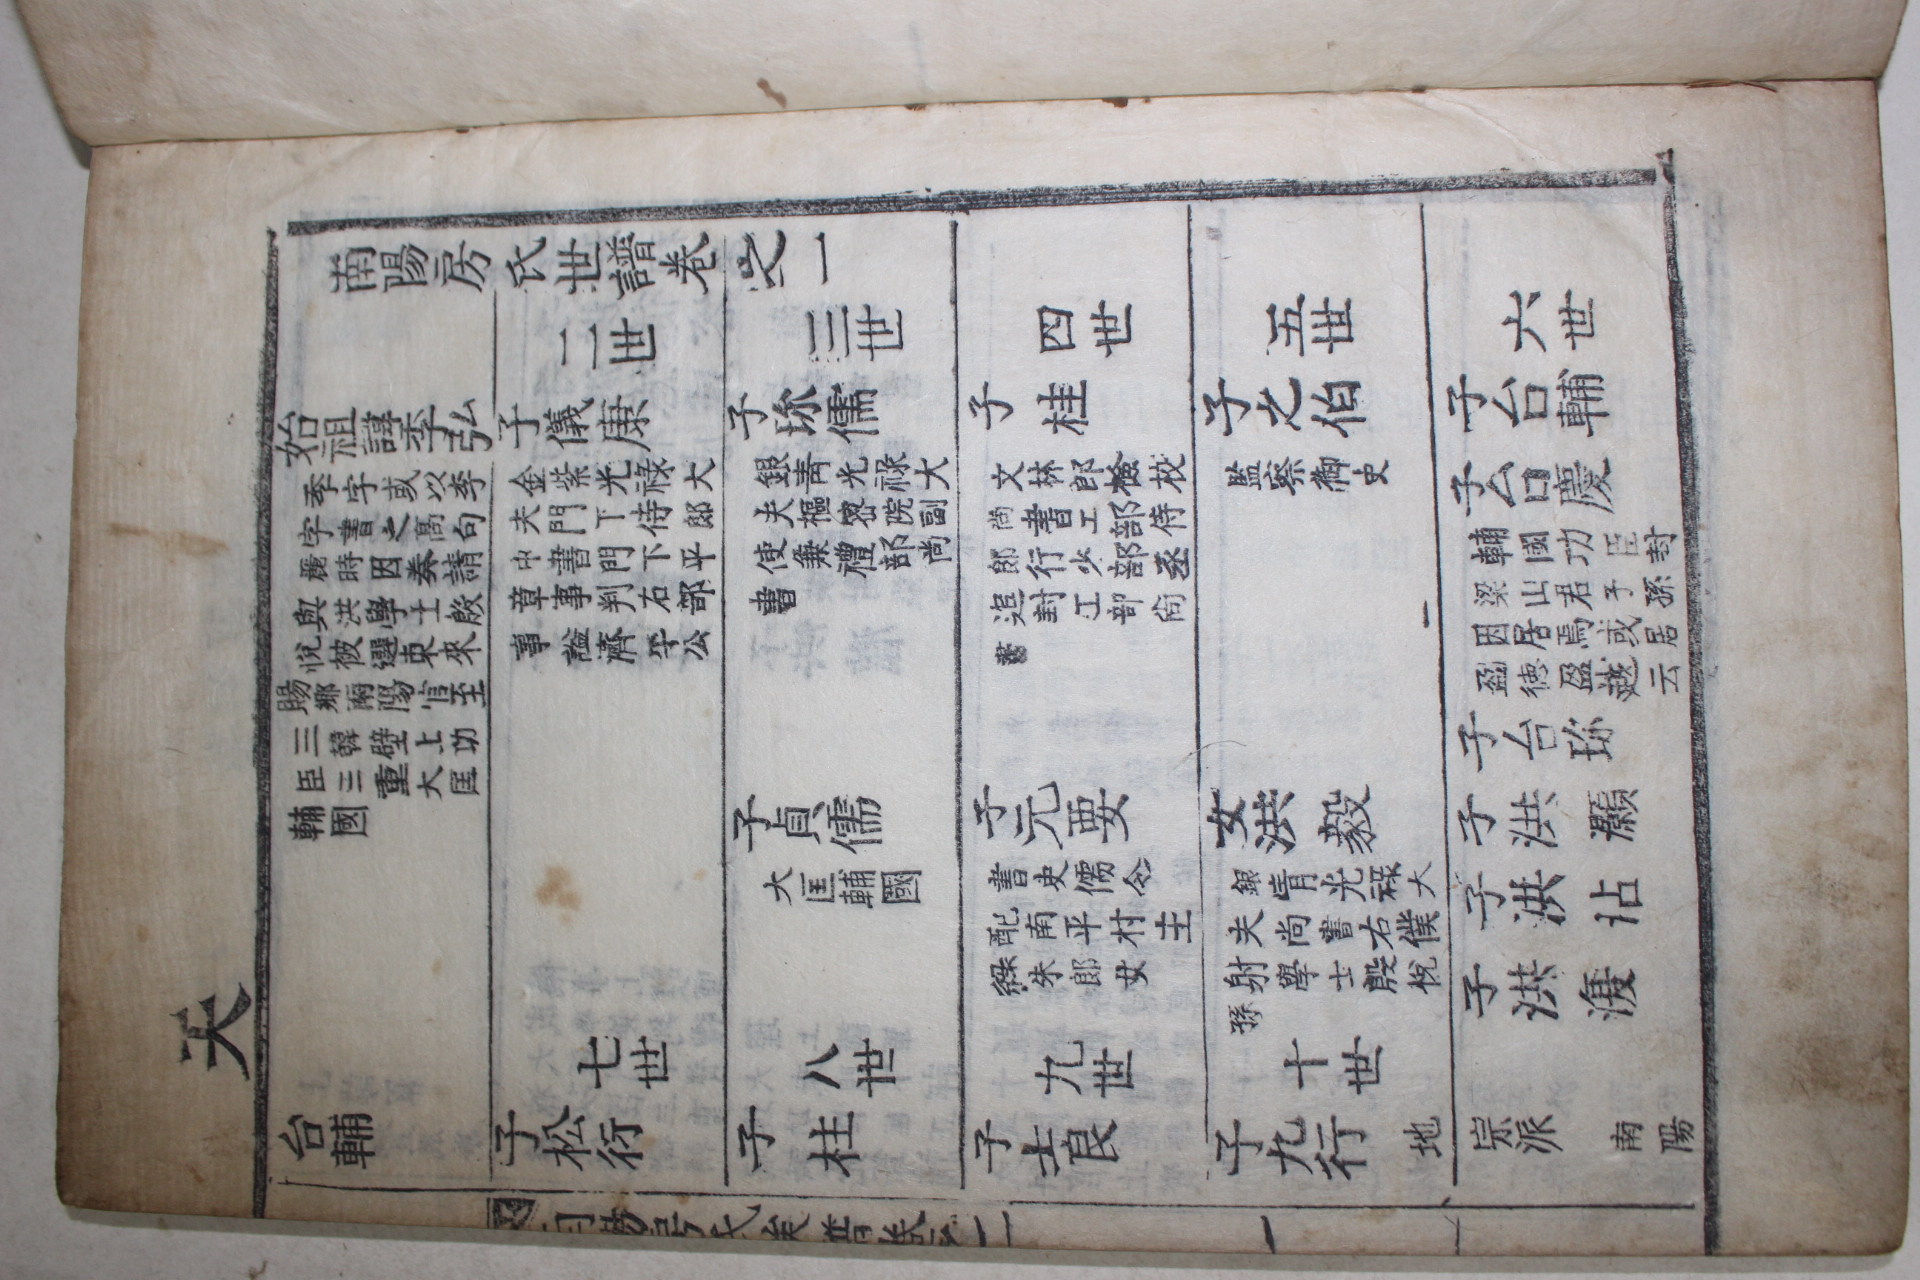 天
南陽房氏世譜卷之一
始祖諱季弘
季字或以李
字書之高句
麗時因奏請
與洪學士殷
悅被選東來
賜鄕南陽官至
三韓壁上功
臣三重大匡
輔國
二世
子儀康
金紫光祿大
夫門下侍郎
中書門下平
章事判右部
事謚濟平公
三世
子珎儒
銀靑光祿大
夫樞密院副
使兼禮部尙
書
子貞儒
大匡輔國
四世
子桂
文林郎檢校
尙書工部侍
郎行少部丞
追封工部尙
書
子元要
書史儒令
配南平村主
朱郎女
五世
子之伯
監察御史
女洪毅
銀靑光祿大
夫尙書右僕
射學士殷悅
孫
六世
子台輔
子台慶
輔國功臣封
梁山君子孫
因居焉或居
盈德盈越云
子台珎
子洪灝
子洪沾
子洪
台輔
七世
子松行
八世
子柱
九世
子士良
十世
子九行
地
宗派
南陽
南陽房氏族譜卷之一
一